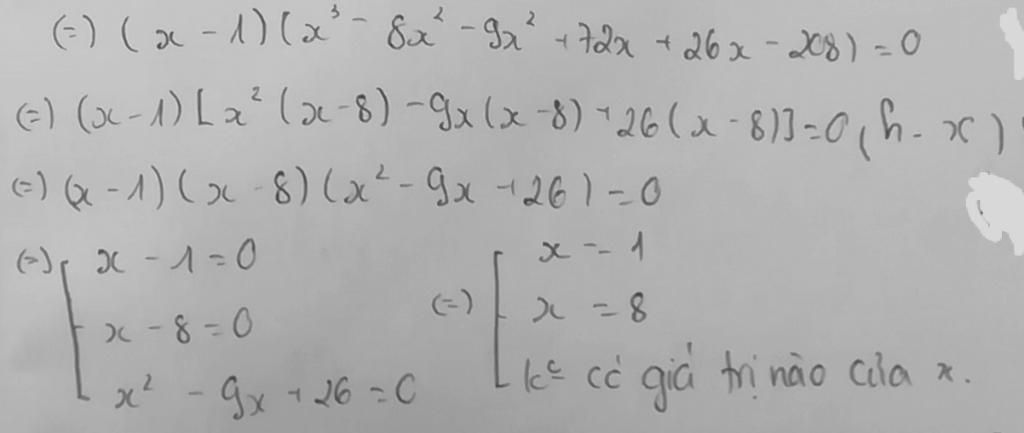 (=) (x - 1)(x³ - 8x² - 9x² + 72x + 26x - 208) = 0
(=) (x - 1)[x²(x - 8) - 9x(x - 8) + 26(x - 8)] = 0 (h - x)
(=) (x - 1)(x - 8)(x² - 9x + 26) = 0
(=) [ x - 1 = 0 (=) [ x = 1
x - 8 = 0 x = 8
x² - 9x + 26 = 0 kᶜ có giá trị nào của x.